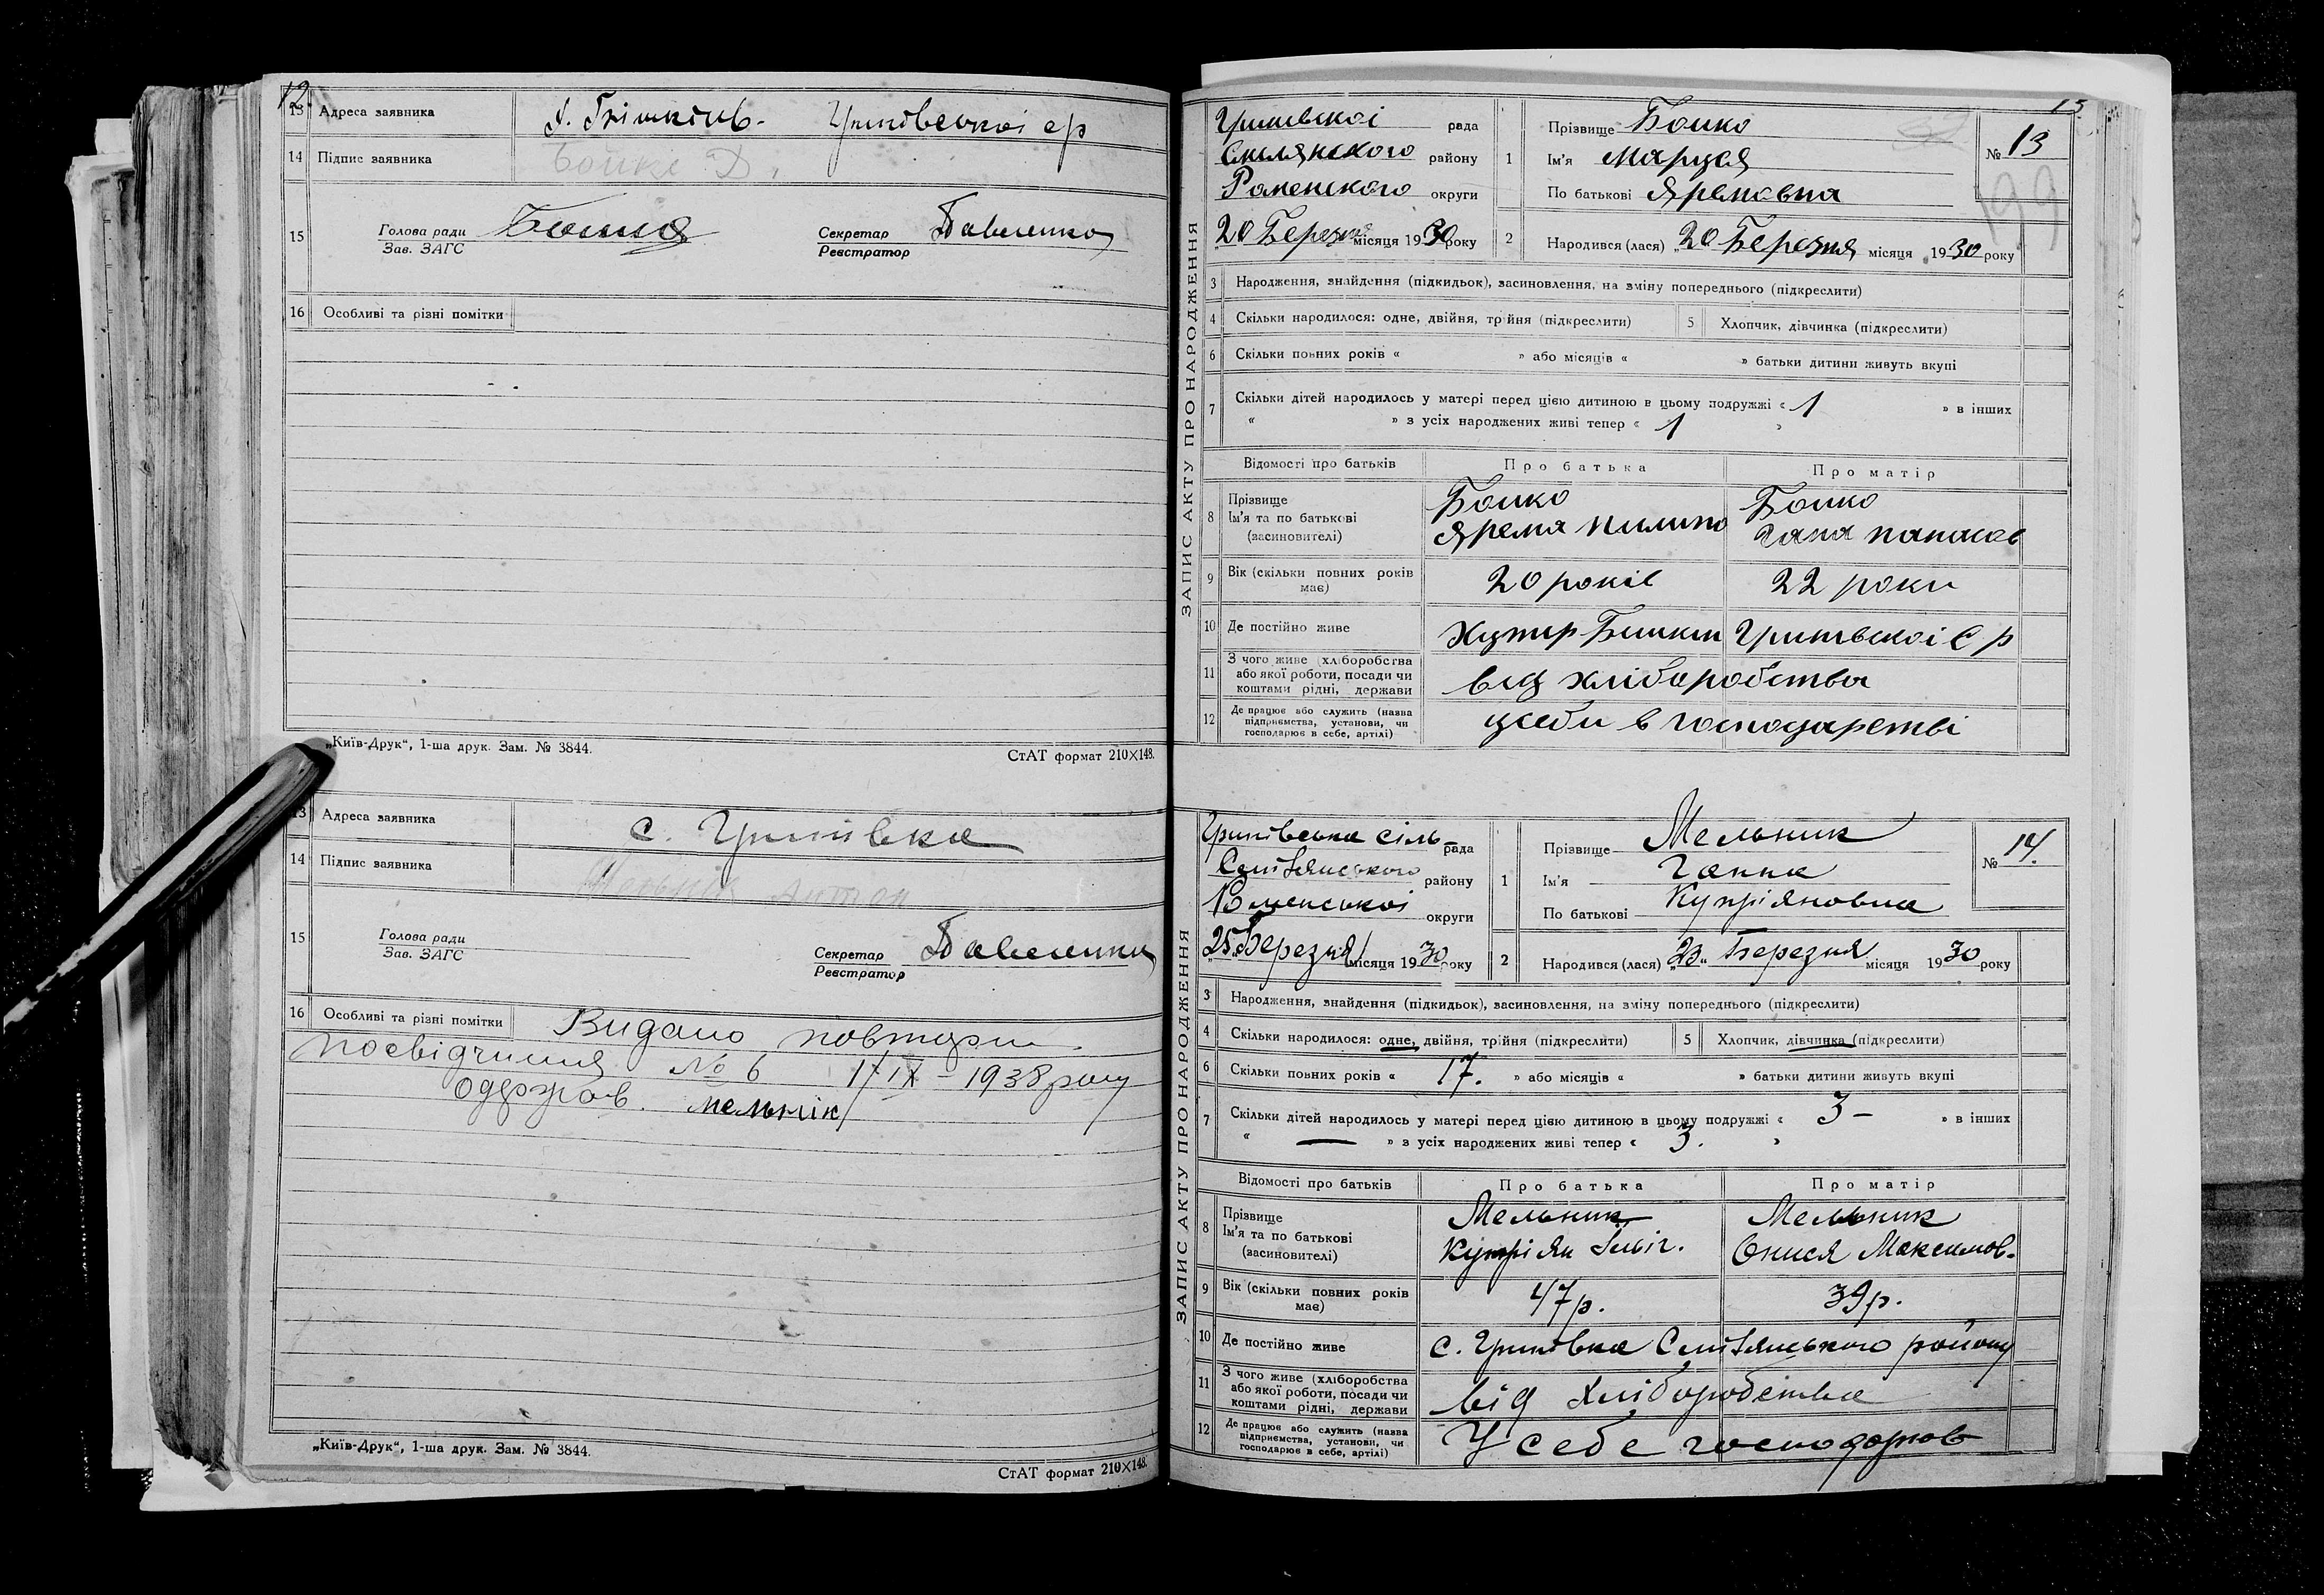 12
13 Адреса заявника х. Гришківь. Гринівської с р
14 Підпис заявника Бойко
15 Голова ради
Зав. ЗАГС
Секретар Павленко
Реєстратор
16 Особливі та різні помітки
„Київ-Друк“, 1-ша друк. Зам. № 3844.
СтАТ формат 210×148.
13 Адреса заявника с. Гринівка
14 Підпис заявника Антон
15 Голова ради
Зав. ЗАГС
Секретар Павленко
Реєстратор
16 Особливі та різні помітки Видано повторн.
посвідчиння № 6 1/IX – 1938 року
Одержав. мельнік
„Київ-Друк“, 1-ша друк. Зам. № 3844.
СтАТ формат 210×148.
15
ЗАПИС АКТУ ПРО НАРОДЖЕННЯ
Гринівскої рада
району
Роменского округи
20 Березня місяця 1930 року
1 Прізвище Бойко
Ім'я Маруся
По батькові Яремовна
№ 13
199
2 Народився (лася) „20 Березня місяця 1930 року
3 Народження, знайдення (підкидьок), засиновлення, на зміну попереднього (підкреслити)
4 Скільки народилося: одне, двійня, трійня (підкреслити) 5 Хлопчик, дівчинка (підкреслити)
6 Скільки повних років « » або місяців « » батьки дитини живуть вкупі
7 Скільки дітей народилось у матері перед цією дитиною в цьому подружжі « 1 » в інших
« » з усіх народжених живі тепер « 1 »
Відомості про батьків Про батька Про матір
8 Прізвище Бойко Бойко
Ім'я та по батькові Ярема Пилипо Гана Панасов
(засиновителі)
9 Вік (скільки повних років має) 20 років 22 роки
10 Де постійно живе Хутир Гринівскої С р
11 З чого живе (хліборобства
або якої роботи, посади чи
коштами рідні, держави від хліборобства
12 Де працює або служить (назва
підприємства, установи, чи
господарює в себе, артілі) усеби в господарстві
ЗАПИС АКТУ ПРО НАРОДЖЕННЯ
Гринівська сіль– рада
району
Роменської округи
„25“ Березня місяця 1930 року
1 Прізвище Мельник
Ім'я Ганна
По батькові Купріяновна
№ 14.
2 Народився (лася) „23“ Березня місяця 1930 року
3 Народження, знайдення (підкидьок), засиновлення, на зміну попереднього (підкреслити)
4 Скільки народилося: одне, двійня, трійня (підкреслити) 5 Хлопчик, дівчинка (підкреслити)
6 Скільки повних років « 17. » або місяців « » батьки дитини живуть вкупі
7 Скільки дітей народилось у матері перед цією дитиною в цьому подружжі « 3 – » в інших
« — » з усіх народжених живі тепер « 3. »
Відомості про батьків Про батька Про матір
8 Прізвище Мельник Мельник
Ім'я та по батькові Купріян Онися Максимов.
(засиновителі)
9 Вік (скільки повних років має) 47 р. 39 р.
10 Де постійно живе с. Гринівка району
11 З чого живе (хліборобства
або якої роботи, посади чи
коштами рідні, держави від хліборобства
12 Де працює або служить (назва
підприємства, установи, чи
господарює в себе, артілі) У себе господарюв